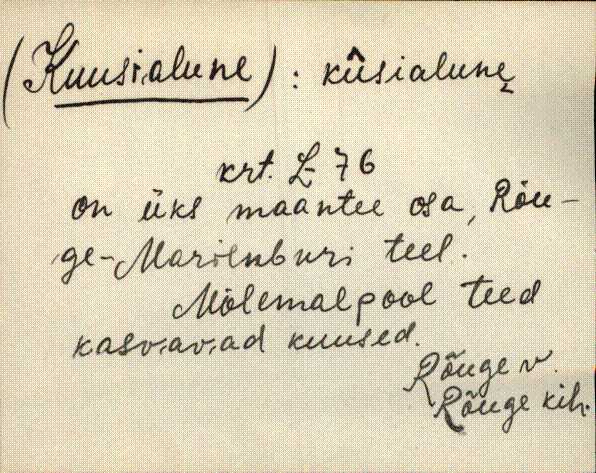 (Kuusialune) : kûsialune̬
krt. L-76
on üks maantee osa, Rõu-
ge-Marienburi teel.
Mõlemalpool teed
kasvavad kuused.
Rõuge v.
Rõuge kih.